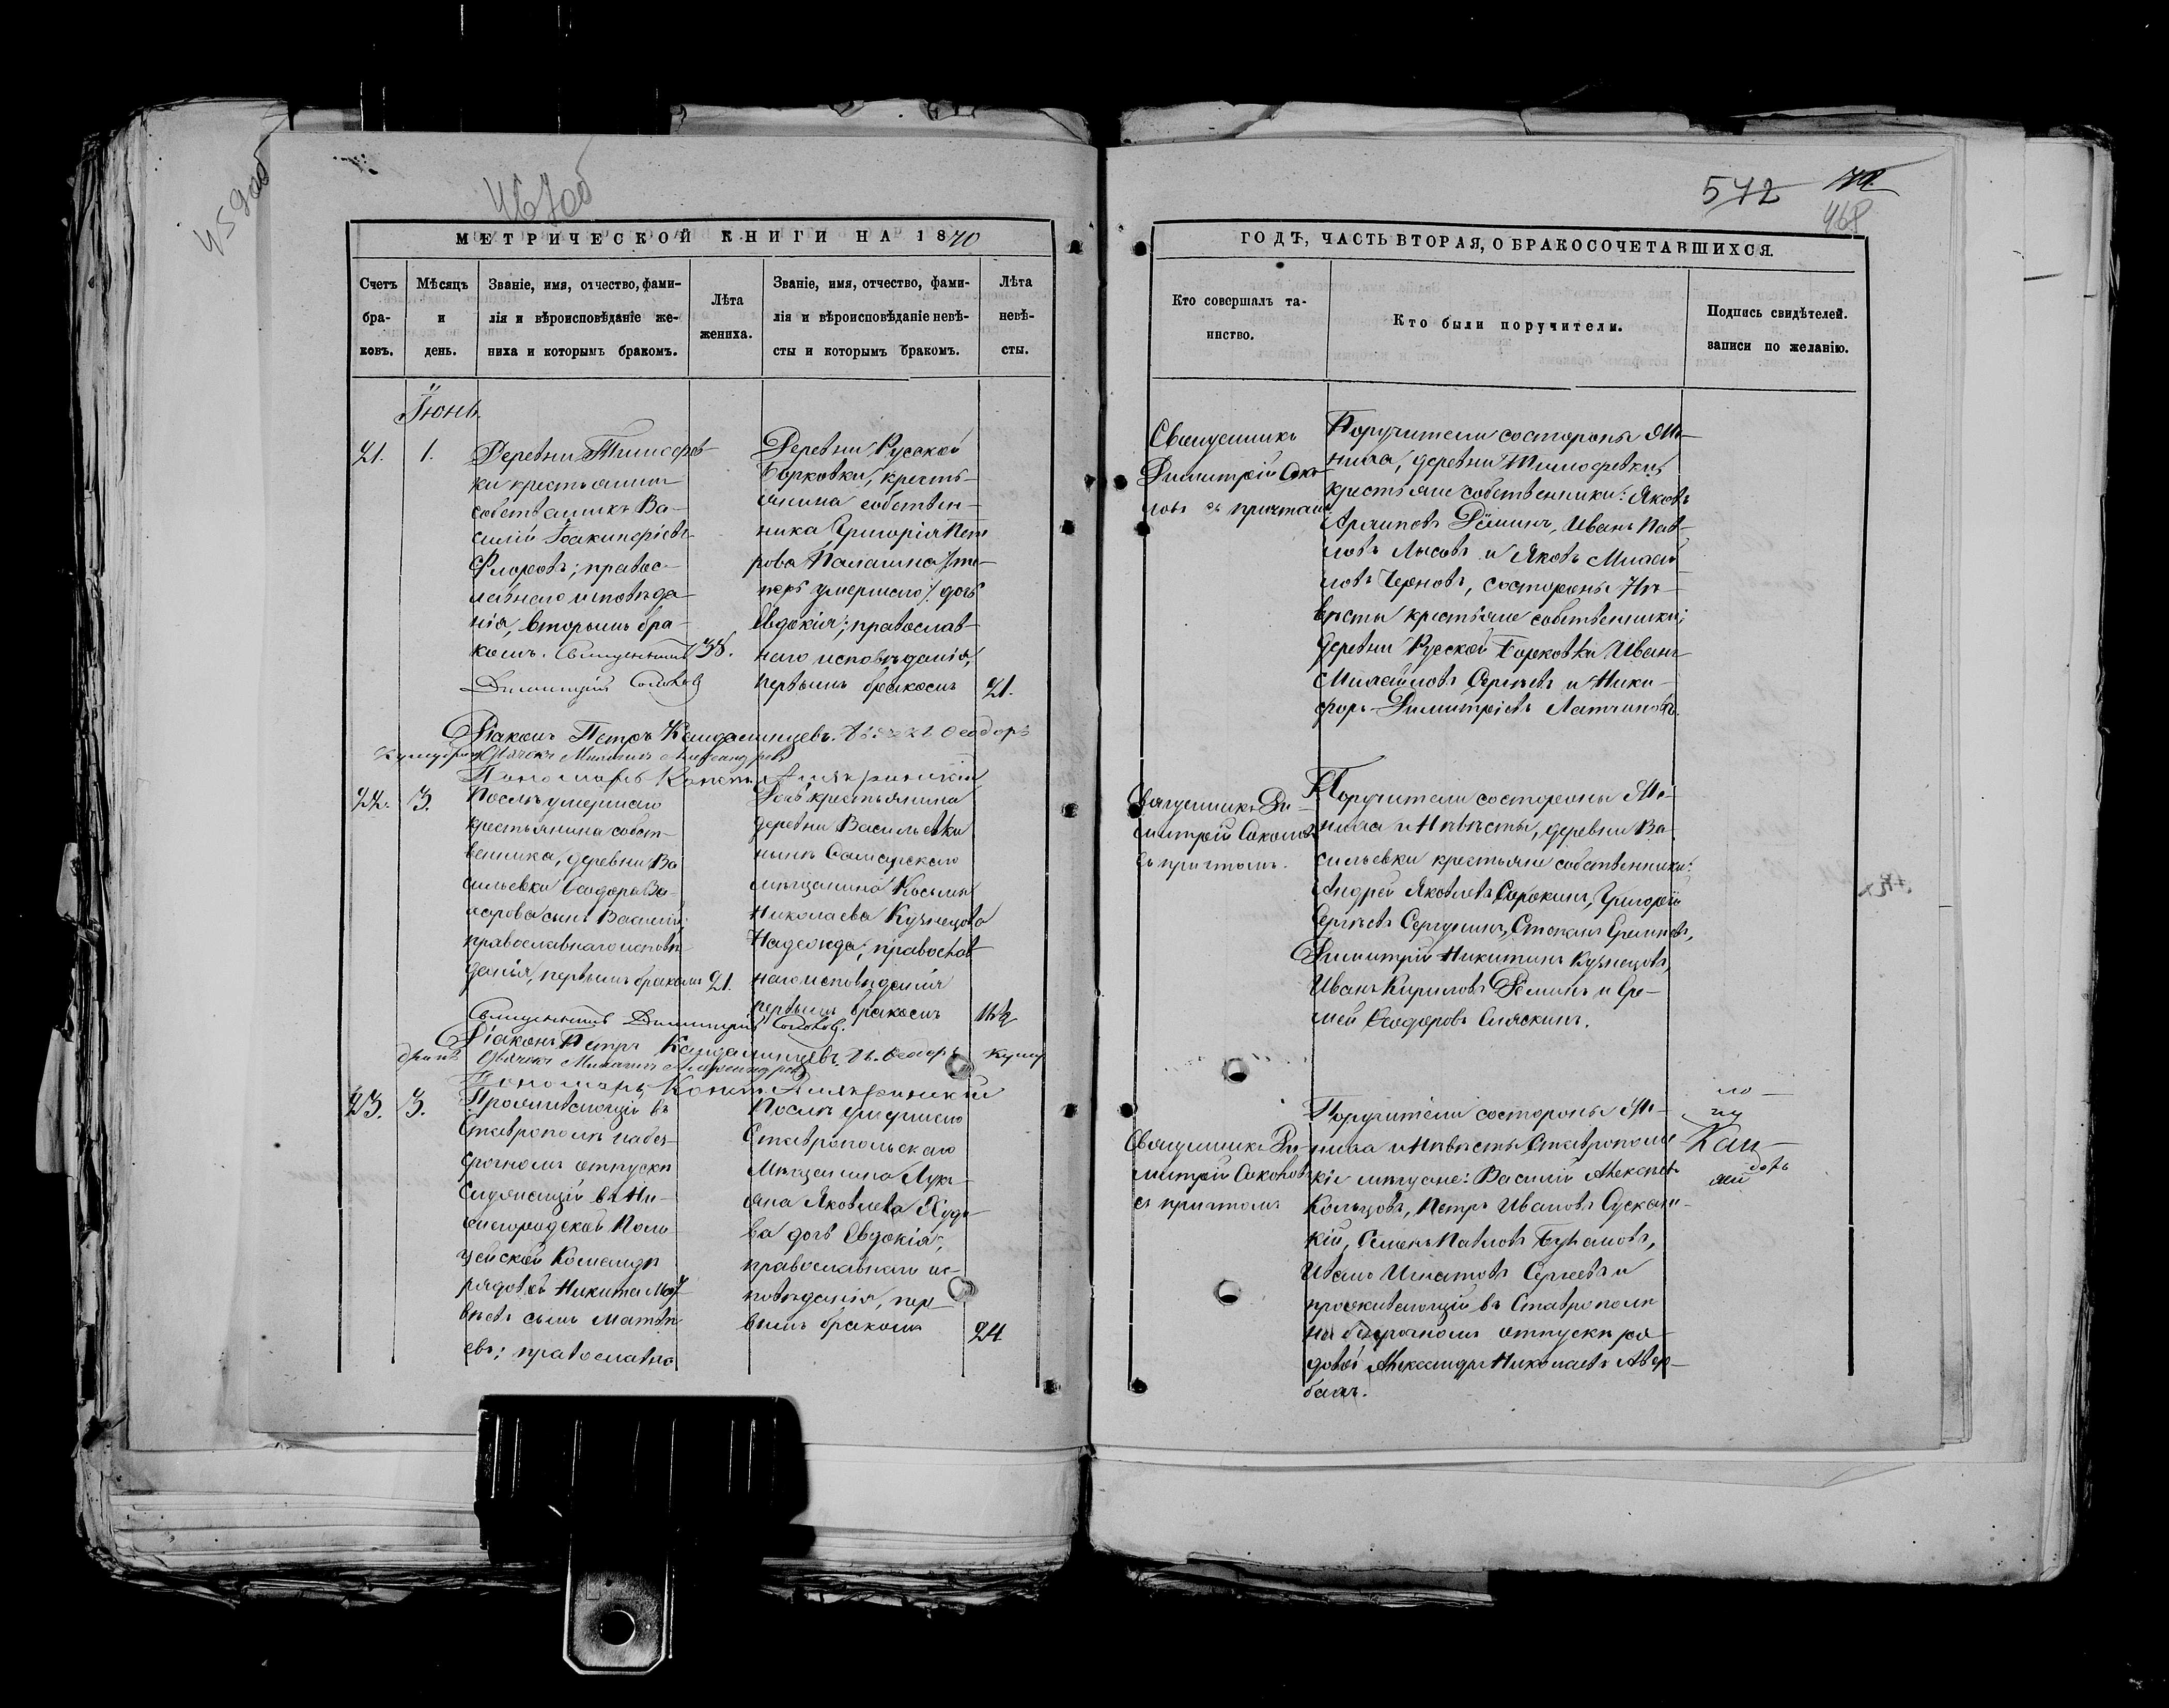 459об
467об
МЕТРИЧЕСКОЙ КНИГИ НА 1870
Счетъ браковъ.
Мѣсяцъ и день.
Званіе, имя, отчество, фамилія и вѣроисповѣданіе жениха и которымъ бракомъ.
Лѣта жениха.
Званіе, имя, отчество, фамилія и вѣроисповѣданіе невѣсты и которымъ бракомъ.
Лѣта невѣсты.
Іюнь.
21.
1.
Деревни Тимофев-
ки крестьянинъ
собственникъ Ва-
силій Іоакинфіевъ
Флоровъ; правос-
лавнаго исповѣда-
нія, вторымъ бра-
комъ.
38.
Деревни Русской
Борковки, кресть-
янина собствен-
ника Григорія Пет-
рова /те-
перь умершаго/ дочь
Евдокія; православ-
наго исповѣданія,
первымъ бракомъ
21.
Священникъ
Димитрій Соколовъ
Діаконъ Петръ Кандалинцевъ. Ѳеодоръ
Дьячекъ Михаилъ Александровъ
Пономарь Конст.
22.
3.
Послѣ умершаго
крестьянина собст-
венника, деревни Ва-
сильевки Ѳеодора За-
харова сынъ Василій;
православнаго исповѣ-
данія, первымъ бракомъ
21.
Дочь крестьянина
деревни Васильевки
нынѣ Самарскаго
мѣщанина Косьмы
Николаева Кузнецова
Надежда; православ-
наго исповѣданія
первымъ бракомъ
Священникъ Димитрій Соколовъ.
Діаконъ Петръ Кандалинцевъ. Ѳеодоръ
Дьячекъ Михаилъ Александровъ
Пономарь Конст.
23.
3.
Проживающій въ
Ставрополѣ на без-
срочномъ отпускѣ
Служащій въ Ни-
жегородской Поли-
цейской Командѣ
рядовой Никита Мат-
вѣевъ сынъ Матвѣ-
евъ; православно
Послѣ умершаго
Ставропольскаго
Мѣщанина Лукь-
яна Яковлева
дочь Евдокія;
православнаго ис-
повѣданія, пер-
вымъ бракомъ
24
572
468
ГОДЪ, ЧАСТЬ ВТОРАЯ, О БРАКОСОЧЕТАВШИХСЯ.
Кто совершалъ таинство.
Кто были поручители.
Подпись свидѣтелей. записи по желанію.
Священникъ
Димитрій Соко-
ловъ съ причтомъ
Поручители состороны Же-
ниха, деревни Тимофевки,
крестьяне собственники: Яковъ
Архиповъ Дёминъ, Иванъ Пав-
ловъ Лысовъ и Яковъ Михай-
ловъ Черновъ, состороны Не-
вѣсты крестьяне собственники;
деревни Русской Борковки Иванъ
Михайловъ Сергѣевъ и Ники-
форъ Димитріевъ
Священникъ Ди-
митрій Соколовъ
съ причтомъ.
Поручители состороны Же-
ниха и Невѣсты, деревни Ва-
сильевки крестьяне собственники:
Андрей Яковлевъ Сорокинъ, Григорій
Сергѣевъ Сергушинъ, Степанъ Ереминъ,
Димитрій Никитинъ Кузнецовъ,
Иванъ Кириловъ Дёминъ и Ере-
мей Ѳеодоровъ
Священникъ Ди-
митрій Соколовъ
съ причтомъ
Поручители состороны Же-
ниха и Невѣсты Ставрополь-
кіе мѣщане: Василій Алексѣевъ
Кольцовъ, Петръ Ивановъ
Семенъ Павловъ
Иванъ Игнатовъ Сергеевъ и
проживающій въ Ставрополѣ
на безсрочномъ отпускѣ ря-
довой Александръ Николаевъ Авер-